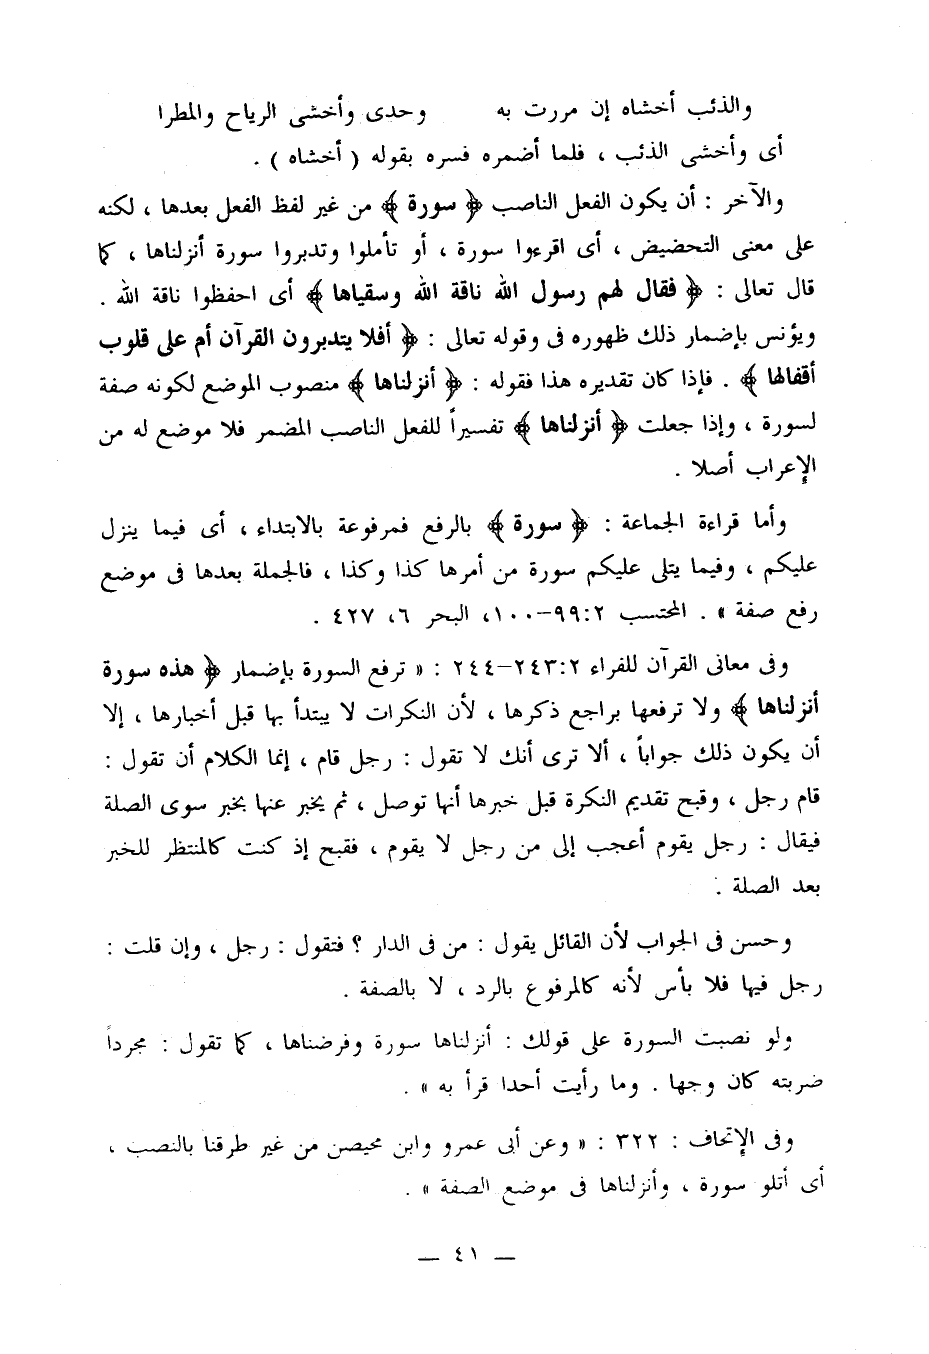 والذئب أخشاه إن مررت به وحدى وأخشى الرياح والمطرا
أى وأخشى الذئب ، فلما أضمره فسره بقوله ( أخشاه ) .
والآخر : أن يكون الفعل الناصب ﴿ سورة ﴾ من غير لفظ الفعل بعدها ، لكنه
على معنى التحضيض ، أى اقرءوا سورة ، أو تأملوا وتدبروا سورة أنزلناها ، كما
قال تعالى : ﴿ فقال لهم رسول الله ناقة الله وسقياها ﴾ أى احفظوا ناقة الله .
ويؤنس بإضمار ذلك ظهوره فى وقوله تعالى : ﴿ أفلا يتدبرون القرآن أم على قلوب
أقفالها ﴾ . فإذا كان تقديره هذا فقوله : ﴿ أنزلناها ﴾ منصوب الموضع لكونه صفة
لسورة ، وإذا جعلت ﴿ أنزلناها ﴾ تفسيراً للفعل الناصب المضمر فلا موضع له من
الإعراب أصلا .
وأما قراءة الجماعة : ﴿ سورة ﴾ بالرفع فمرفوعة بالابتداء ، أى فيما ينزل
عليكم ، وفيما يتلى عليكم سورة من أمرها كذا وكذا ، فالجملة بعدها فى موضع
رفع صفة » . المحتسب ٢:‏٩٩–١٠٠، البحر ٦، ٤٢٧ .
وفى معانى القرآن للفراء ٢:‏٢٤٣–٢٤٤ : « ترفع السورة بإضمار ﴿ هذه سورة
أنزلناها ﴾ ولا ترفعها براجع ذكرها ، لأن النكرات لا يبتدأ بها قبل أخبارها ، إلا
أن يكون ذلك جواباً ، ألا ترى أنك لا تقول : رجل قام ، إنما الكلام أن تقول :
قام رجل ، وقبح تقديم النكرة قبل خبرها أنها توصل ، ثم يخبر عنها بخبر سوى الصلة
فيقال : رجل يقوم أعجب إلى من رجل لا يقوم ، فقبح إذ كنت كالمنتظر للخبر
بعد الصلة .
وحسن فى الجواب لأن القائل يقول : من فى الدار ؟ فتقول : رجل ، وإن قلت :
رجل فيها فلا بأس لأنه كالمرفوع بالرد ، لا بالصفة .
ولو نصبت السورة على قولك : أنزلناها سورة وفرضناها ، كما تقول : مجرداً
ضربته كان وجها . وما رأيت أحدا قرأ به » .
وفى الإتحاف : ٣٢٢ : « وعن أبى عمرو وابن محيصن من غير طرقنا بالنصب ،
أى أتلو سورة ، وأنزلناها فى موضع الصفة » .
— ٤١ —